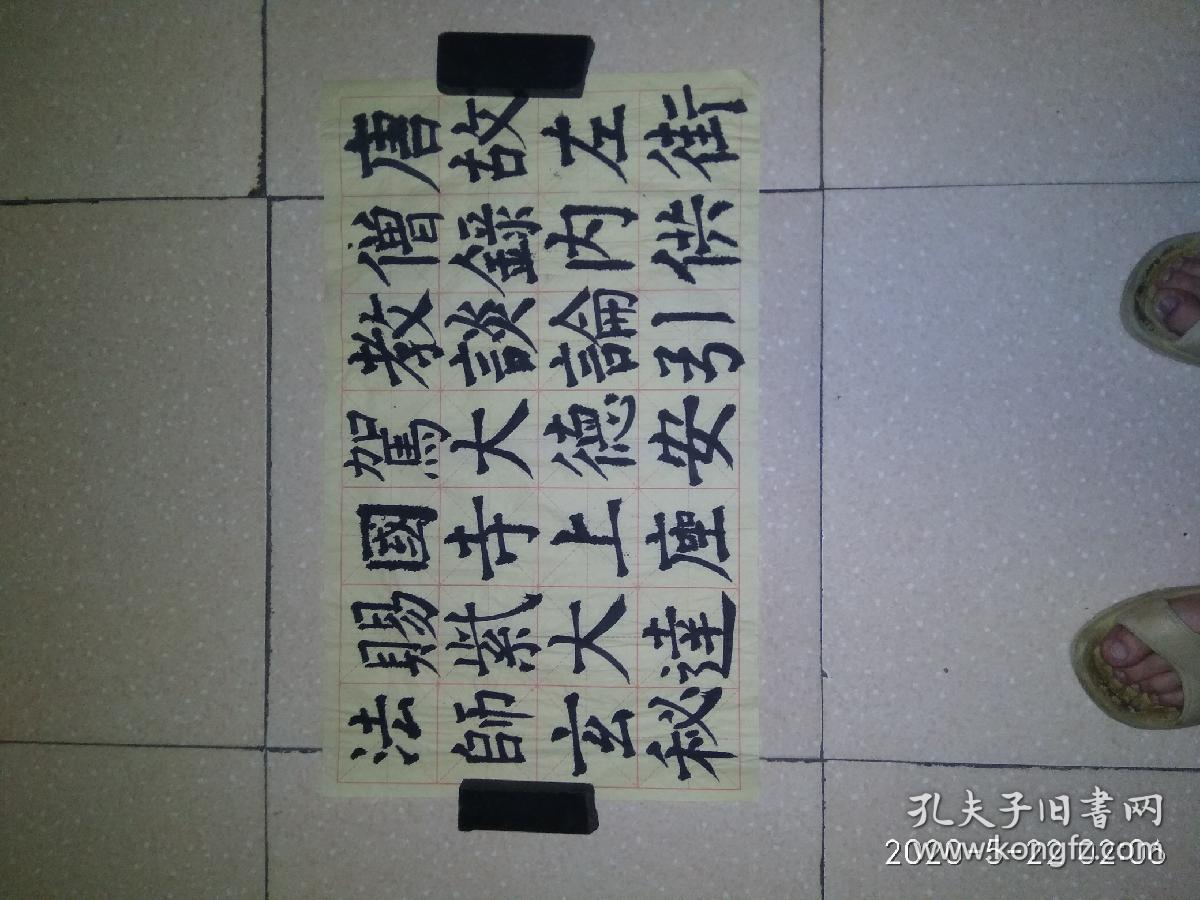 唐故左街
僧錄内供
教談論引
駕大德安
國寺上座
賜紫大達
法師玄秘
孔夫子旧书网
www.kongfz.com
2020-5-22 02:06